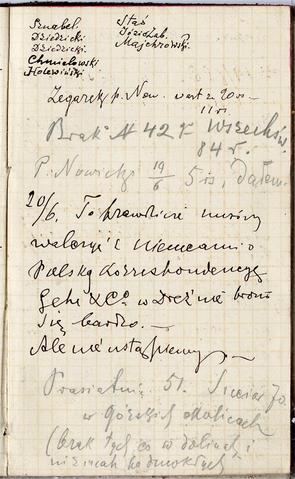 Sznabel.
Dziedzicki.
Dziedzicki.
Chmielowski
Holewiński
Staś
Józio Lab.
Majchrowski.
Zegarek p. Now. wart r. 20
11
Brak № 42 r. Wszechśw.
84 r.
P. Nowicki 19/6 5 rs, dałem.
20/6. To prawdziwie musimy
walczyć z niemcami o
Polską korrespondencyę
Gehe & Co w Dreźnie broni
się bardzo. —
Ale nie ustąpiemy. —
51.
w górskich okolicach
(brak tych co w dolinach i